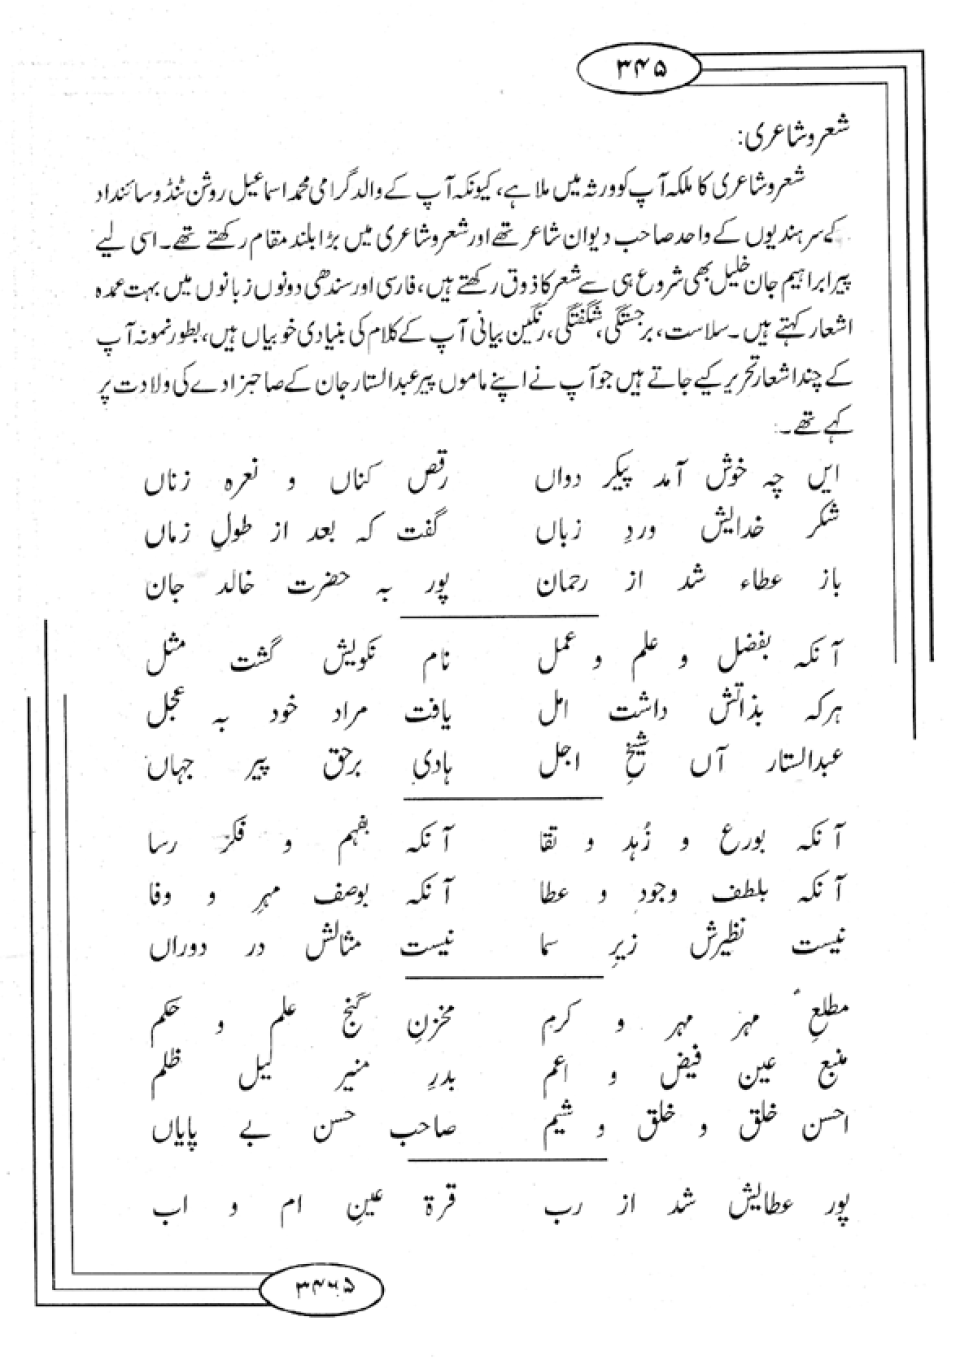 ۳۴۵
شعر و شاعری:
شعر و شاعری کا ملکہ آپ کو ورثہ میں ملا ہے، کیونکہ آپ کے والد گرامی محمد اسماعیل روشن ٹنڈو سائنداد
کے سرہندیوں کے واحد صاحب دیوان شاعر تھے اور شعر و شاعری میں بڑا بلند مقام رکھتے تھے۔ اسی لیے
پیر ابراہیم جان خلیل بھی شروع ہی سے شعر کا ذوق رکھتے ہیں، فارسی اور سندھی دونوں زبانوں میں بہت عمدہ
اشعار کہتے ہیں۔ سلاست، برجستگی، شگفتگی، رنگین بیانی آپ کے کلام کی بنیادی خوبیاں ہیں، بطور نمونہ آپ
کے چند اشعار تحریر کیے جاتے ہیں جو آپ نے اپنے ماموں پیر عبدالستار جان کے صاحبزادے کی ولادت پر
کہے تھے۔
ایں چہ خوش آمد پیکر دواں رقص کناں و نعرہ زناں
شکر خدایش وردِ زباں گفت کہ بعد از طولِ زماں
باز عطاء شد از رحمان پور بہ حضرت خالد جان
آنکہ بفضل و علم و عمل نام نکویش گشت مثل
ہرکہ بذاتش داشت امل یافت مراد خود بہ عجل
عبدالستار آں شیخِ اجل ہادیِ برحق پیر جہاں
آنکہ بورع و زُہد و تقا آنکہ بفہم و فکر رسا
آنکہ بلطف وجود و عطا آنکہ بوصف مہرِ و وفا
نیست نظیرش زیرِ سما نیست مثالش در دوراں
مطلعِ مہر مہر و کرم مخزنِ گنج علم و حکم
منبع عین فیض و اعم بدرِ منیر لیل ظلم
احسن خلق و خلق و شیم صاحب حسن بے پایاں
پور عطایش شد از رب قرۃ عینِ ام و اب